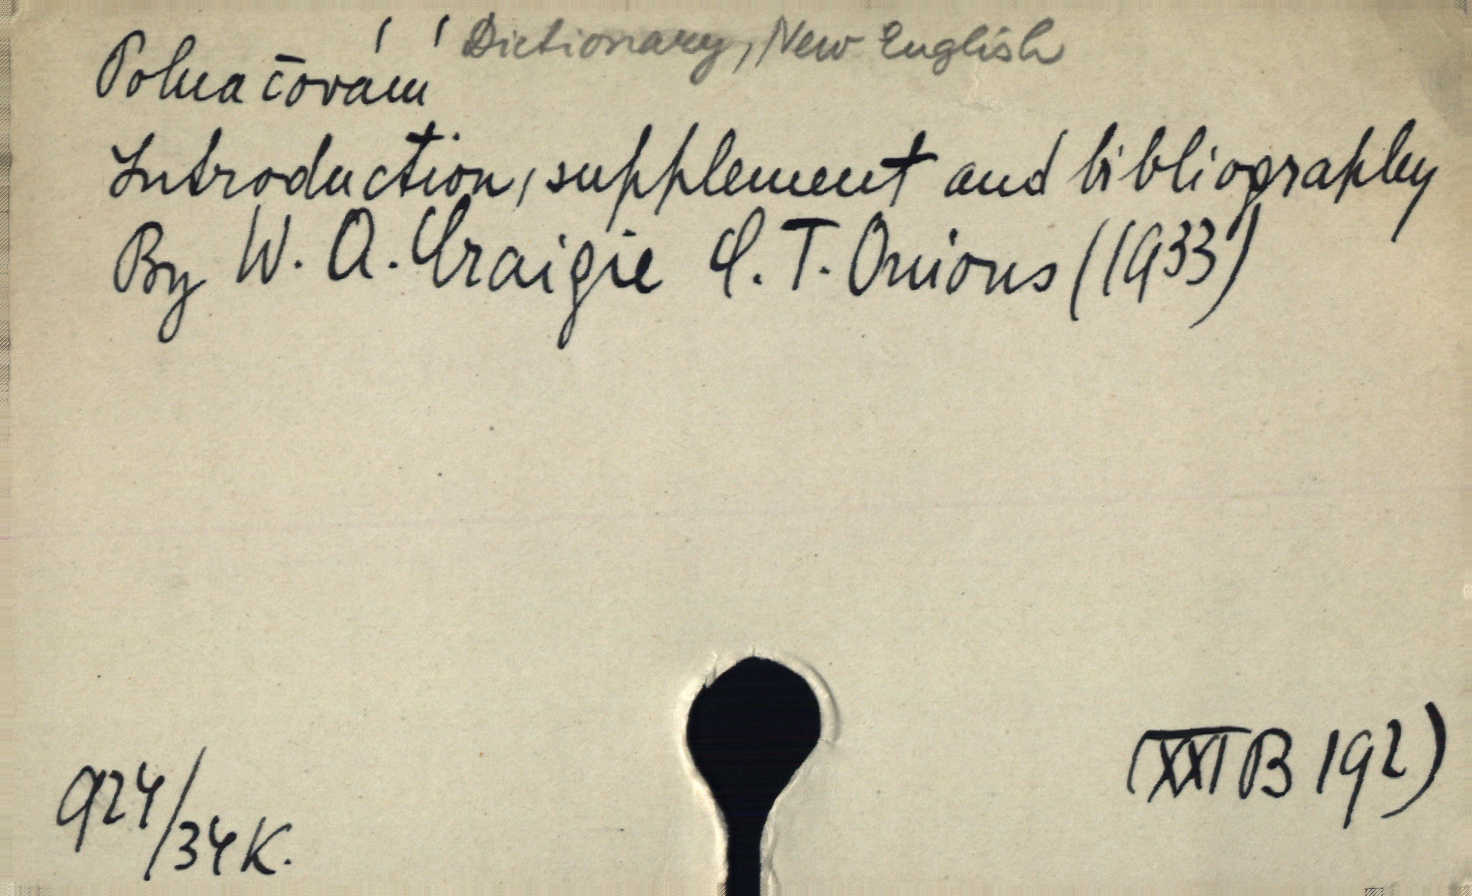 Dictionary, New English
Pokračování
Introduction, supplement and bibliography
By W. A. Craigie C. T. Onions (1933)
924/34 K.
(XXI B 192)